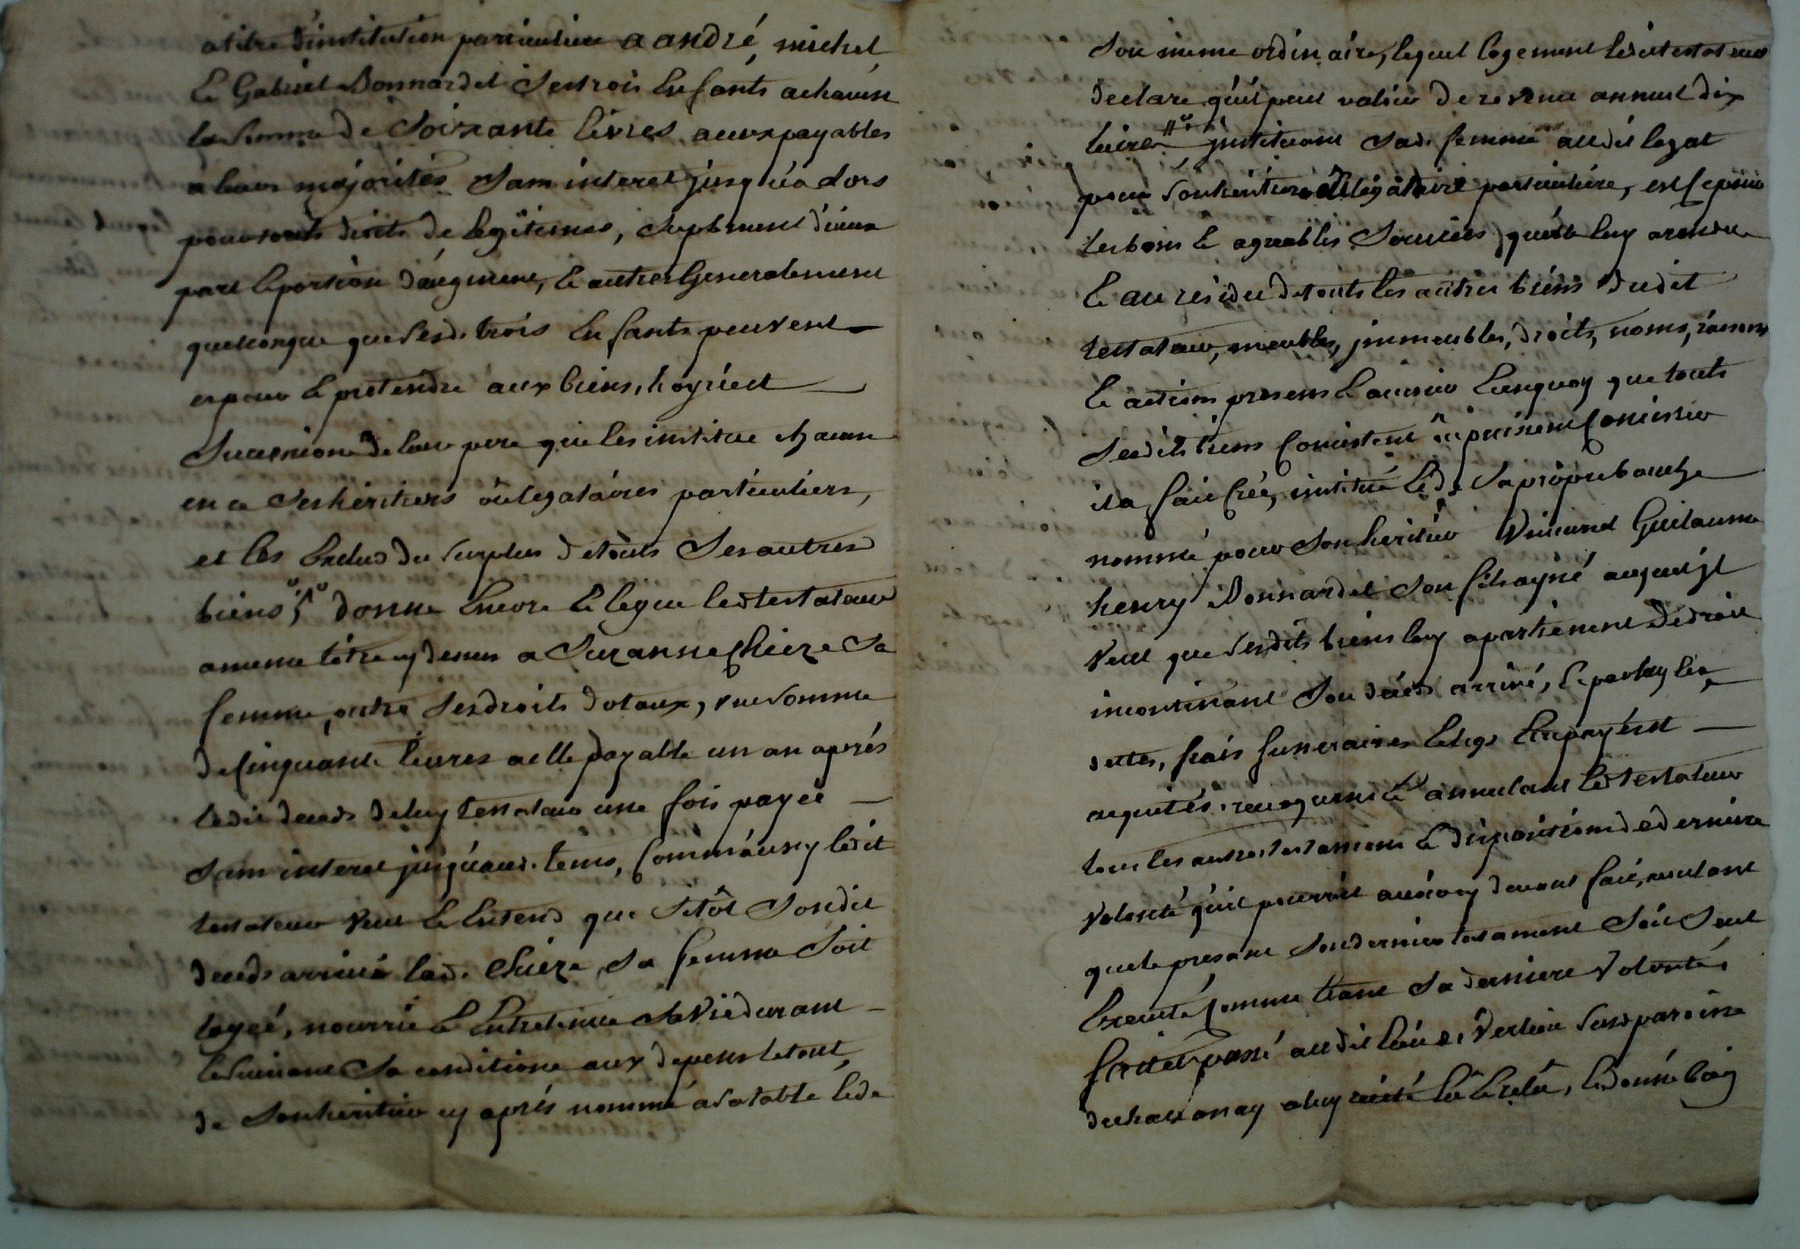 a titre d'institution particuliere a andré, michel
& Gabriel Bonnardel ses trois Enfants a chacun
la somme de soixante livres a eux payables
a leurs majorités sans interet jusqu'a dors
pour touts droits de legitimes, suplement d'icux
part & portion d'augment, & autres Generalement
quelconque que sesd. trois Enfants peuvent
espour & pretendre aux biens, hoyrie et
succession de leur pere qui les institue chacun
en ce ses héritiers ou legataires particuliers,
et les Exclud du surplus de touts ses autres
biens, donne Encore & legue led testateur
a meme titre que dessus a Suzanne Chieze sa
femme, outre ses droits dotaux, une somme
de Cinquante livres a elle payable un an aprés
ledit deceds de luy testateur une fois payée
sans interet jusqu'aud. tems, Comm'aussy ledit
testateur veut & Entend que sitôt sondit
deceds arrivé lad. Chieze sa femme soit
logée, nourrie & Entretenue sa vie durant
& suivant sa conditione aux depens & tout
de son heritier cy aprés nommé a sa table & de
son meme ordinaire, lequel logement ledit testateur
declare qu'il peut valoir de revenu annuel dix
livres instituant sad. femme audit legat
pour son héritiere & legataire particuliere, est ce pour
les bons & agreables services qu'elle luy a rendu
& au residu de touts les autres biens dudit
testateur, meubles, immeubles, droits, noms, raisons
& actions presens & avenir En quoy que touts
sesdits biens Consistent ou puissent Consister
il a fait Créé, institué & de sa propre bouche
nommé pour son heritier Vincent Guilaume
henry Bonnardel son fils ayné auquel jl
veut que sesdits biens luy apartienent de droit
incontinant son deceds arrivé, & par luy les
dettes, frais funeraires & legs Es payés et
aquités. revoquant & annulant led testateur
tous les autres testamens & dispositions de derniere
volonté qu'il pourroit avoir cy devant fait, voulant
que le present son dernier testament soit seul
Executé Comme Etant sa derniere volonté,
fait et passé audit lieu de Verlieu sus paroisse
de chavanay a luy recité lû & relû, & donné loisir